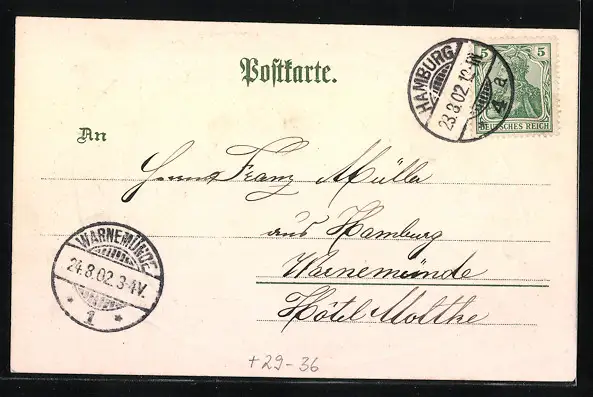 Postkarte.
5 5
HAMBURG
23.8.02.10-11
4 a
DEUTSCHES REICH
An
Herrn Franz Müller
aus Hamburg
Warnemünde
Hôtel Moltke
WARNEMÜNDE
24.8.02.3-4V.
* 1 *
+29-36